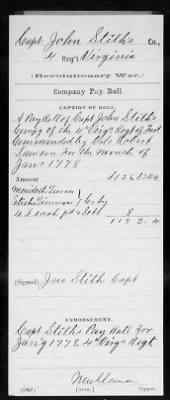 Capt John Stith's Co.,
4 Reg't Virginia
(Revolutionary War.)
Company Pay Roll
CAPTION OF ROLL.
A Pay Roll of Capt John Stith's
Compy of the 4th Virga Regt of Foot
Commanded by Colo Robert
Lawson For the Month of
Jany 1778
Amount
Meridith Turner
4 £ each pd & Sett 8
118 3. 4
(Signed) Jno Stith Capt
ENDORSEMENT.
Capt Stith's Pay Roll for
Jany 1778, 4th Virga Regt
Copyist.